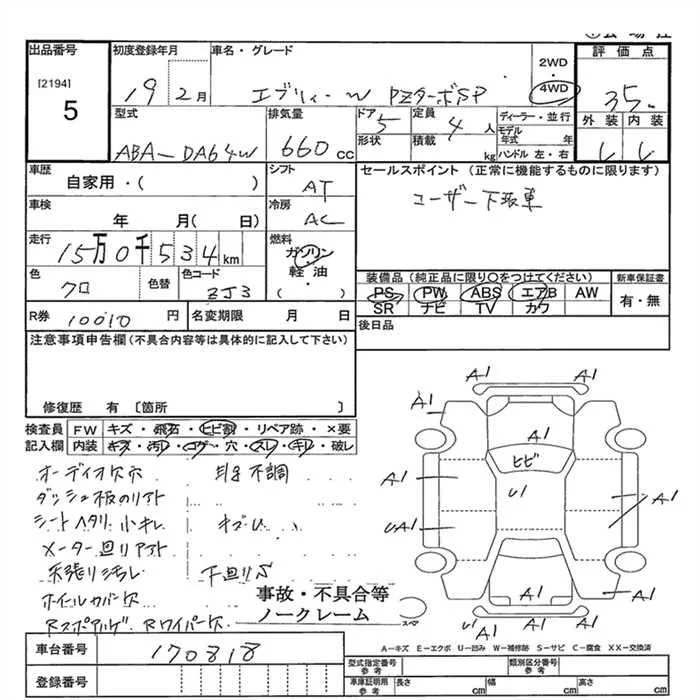 出品番号 初度登録年月 車名・グレード 評価点
[2194] 5 19 2月 エブリィーW PZターボSP 2WD・4WD 35
型式 排気量 ドア 5 定員 4人 ディーラー・並行 外装 内装
ABA-DA64W 660cc 形状 積載 kg モデル年式 年 ハンドル 左・右
車歴 シフト セールスポイント (正常に機能するものに限ります)
自家用・( ) AT ユーザー下取車
車検 冷房
年 月( 日) AC
走行 燃料
15万0千534km ガソリン・軽油・( )
色 色替 色コード 装備品 (純正品に限り○をつけてください) 新車保証書
クロ ZJ3 PS PW ABS エアB AW 有・無
SR ナビ TV カワ
R券 10010円 名変期限 月 日 後日品
注意事項申告欄(不具合内容等は具体的に記入して下さい)
修復歴 有 〔箇所 〕
検査員 FW キズ・飛石・ヒビ割・リペア跡・×要
記入欄 内装 キズ・汚レ・コゲ・穴・スレ・キレ・破レ
A1 A1 A1 ヒビ A1 U1 A1 UA1 A1 A1 A1 A1 U1 A1
オーディオ欠穴
ダッシュ板のリフト
シートヘタリ 小キレ
メーター廻リフト
天張り汚レ 下廻りS
ホイルカバー欠
Rワイパー欠
事故・不具合等
ノークレーム
スペア
A-キズ E-エクボ U-凹み W-補修跡 S-サビ C-腐食 XX-交換済
車台番号 170818
登録番号
型式指定番号 参考 類別区分番号 参考
車庫証明用 参考 長さ cm 幅 cm 高さ cm